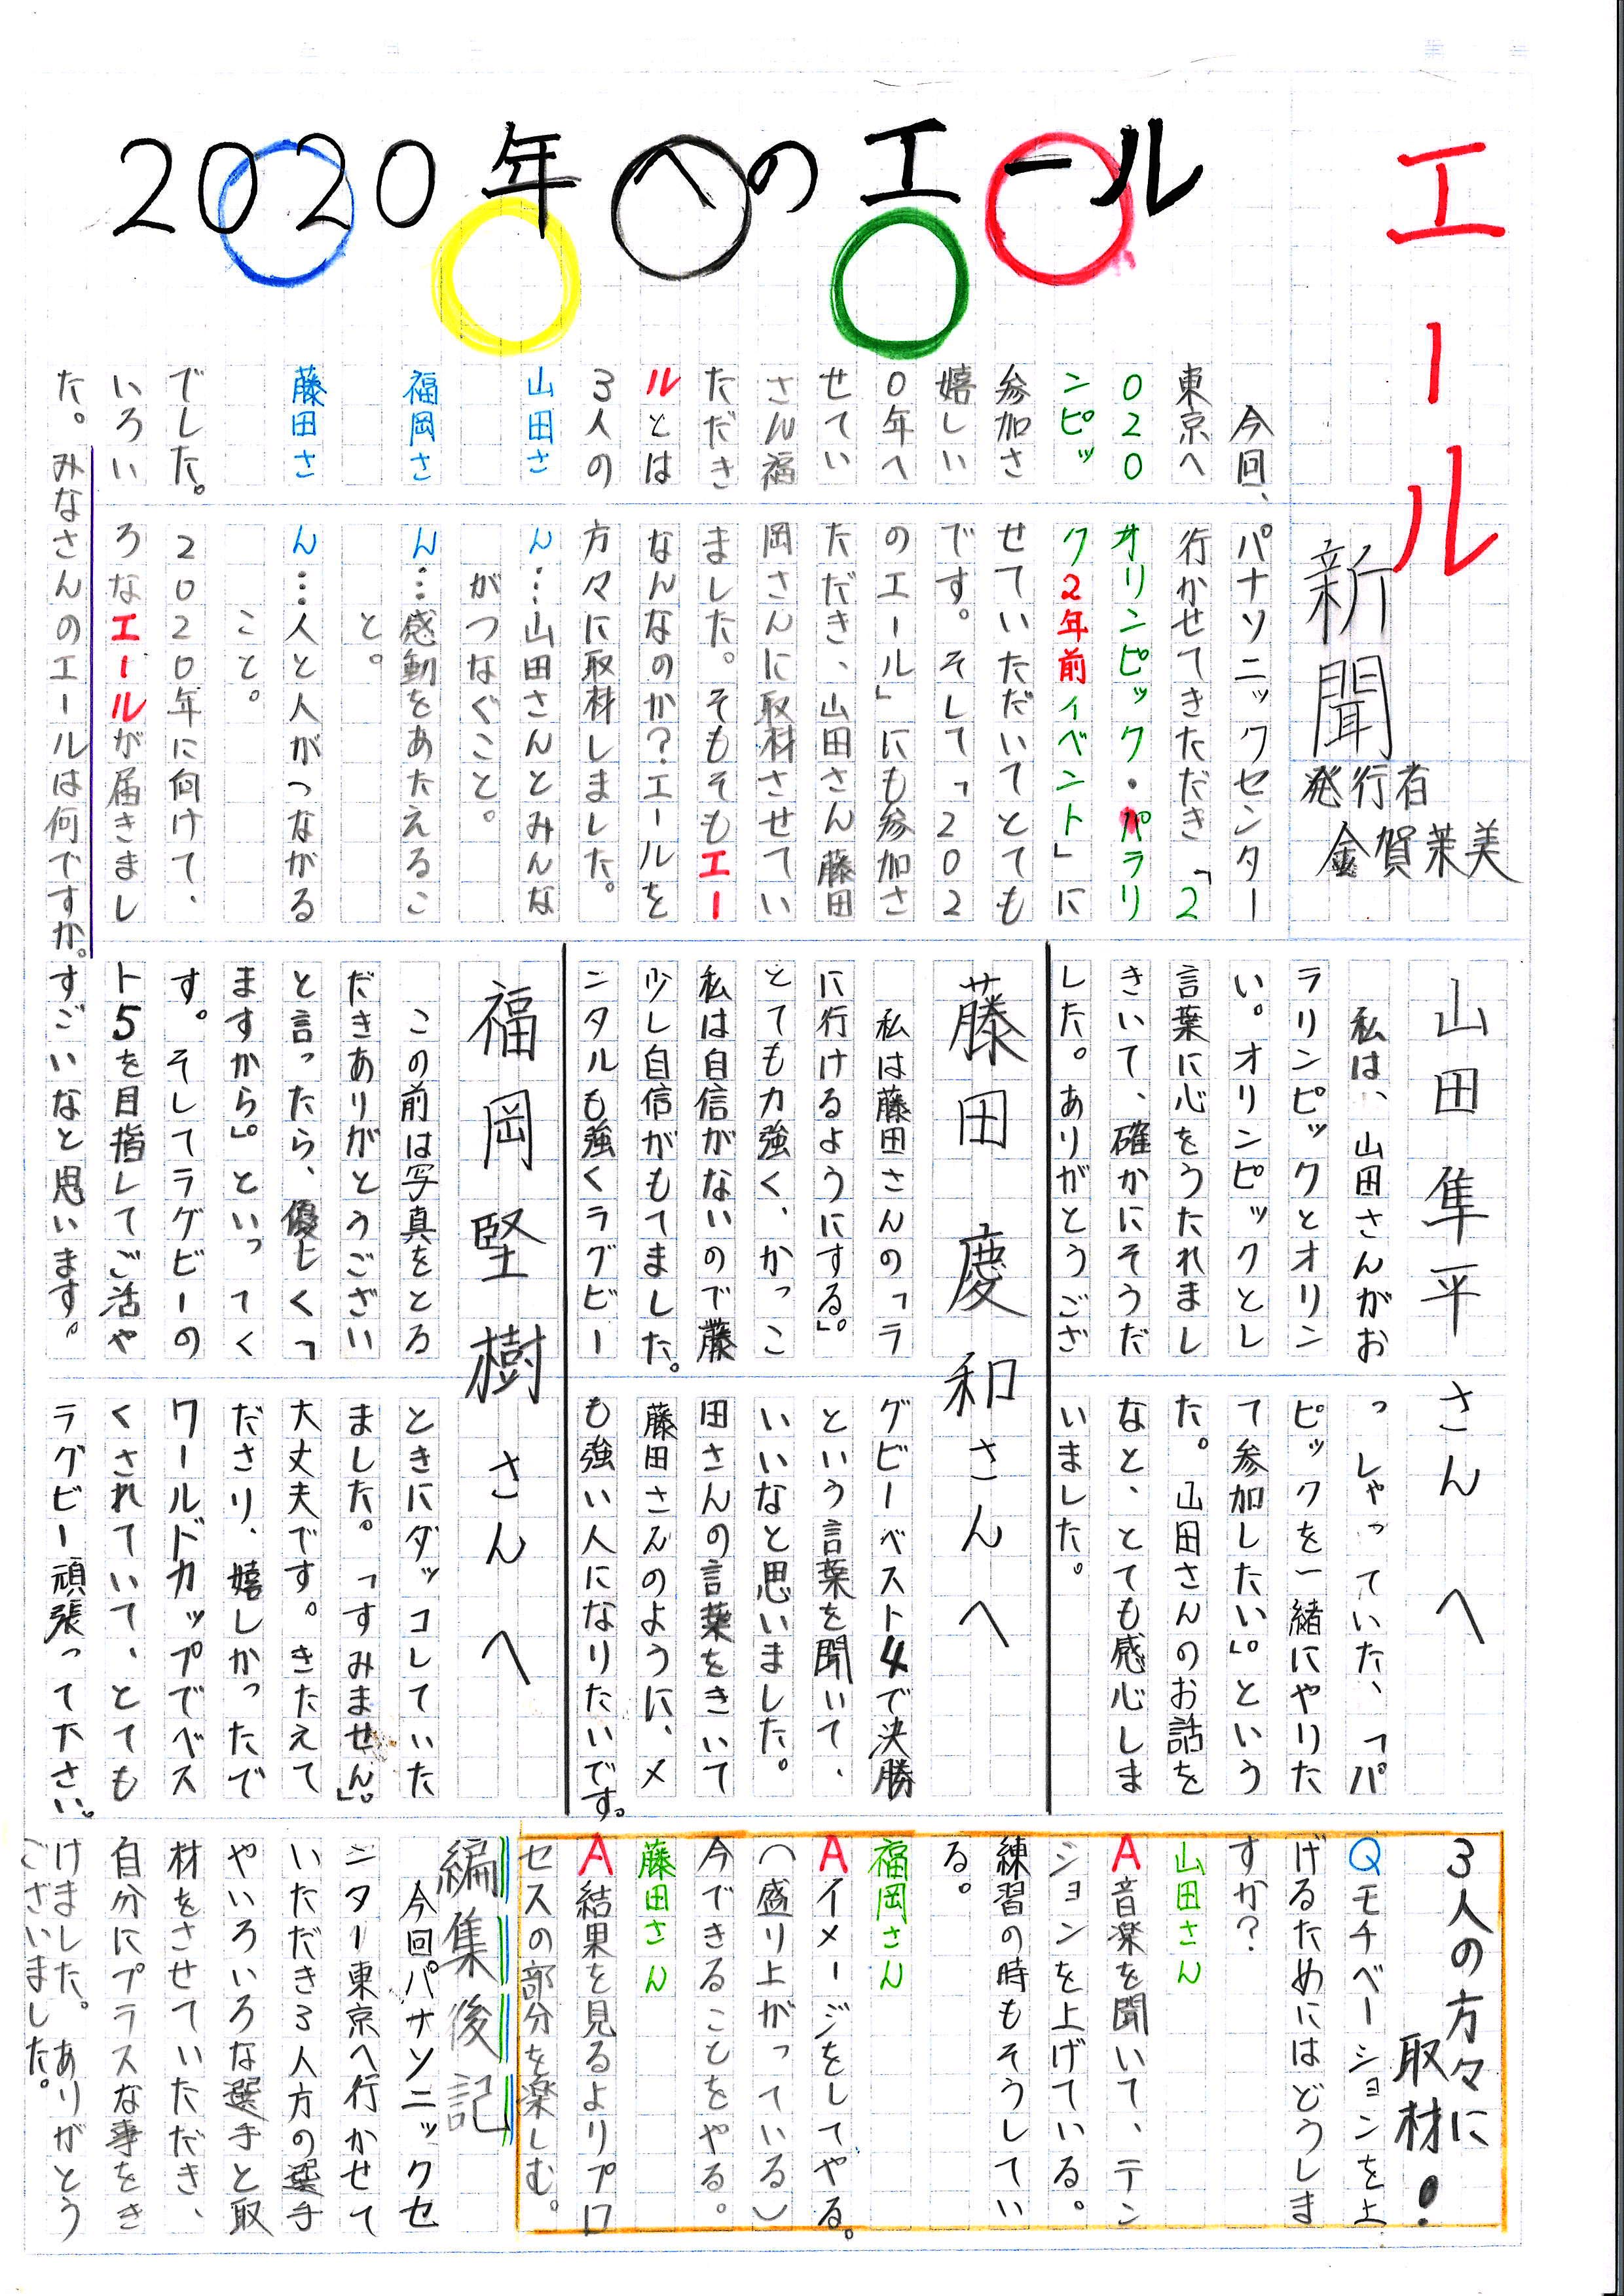 エール
新聞
発行者
金賀茉美
2020年へのエール
今回、パナソニックセンター
東京へ行かせてきただき「2
020オリンピック・パラリ
ンピック2年前イベント」に
参加させていただいてとても
嬉しいです。そして「202
0年へのエール」にも参加さ
せていただき、山田さん藤田
さん福岡さんに取材させてい
ただきました。そもそもエー
ルとはなんなのか?エールを
3人の方々に取材しました。
山田さん…山田さんとみんな
がつなぐこと。
福岡さん…感動をあたえるこ
と。
藤田さん…人と人がつながる
こと。
でした。2020年に向けて、
いろいろなエールが届きまし
た。みなさんのエールは何ですか。
山田隼平さんへ
私は、山田さんがおっしゃっていた、「パ
ラリンピックとオリンピックを一緒にやりた
い。オリンピックとして参加したい」。という
言葉に心をうたれました。山田さんのお話を
きいて、確かにそうだなと、とても感心しま
した。ありがとうございました。
藤田慶和さんへ
私は藤田さんの「ラグビーベスト4で決勝
に行けるようにする」。という言葉を聞いて、
とても力強く、かっこいいなと思いました。
私は自信がないので藤田さんの言葉をきいて
少し自信がもてました。藤田さんのように、メ
ンタルも強くラグビーも強い人になりたいです。
福岡堅樹さんへ
この前は写真をとるときにダッコしていた
だきありがとうございました。「すみません」。
と言ったら、優しく「大丈夫です。きたえて
ますから」。といってくださり、嬉しかったで
す。そしてラグビーのワールドカップでベス
ト5を目指してご活やくされていて、とても
すごいなと思います。ラグビー頑張って下さい。
3人の方々に
取材!
Qモチベーションを上
げるためにはどうしま
すか?
山田さん
A音楽を聞いて、テン
ションを上げている。
練習の時もそうしてい
る。
福岡さん
Aイメージをしてやる。
(盛り上がっている)
今できることをやる。
藤田さん
A結果を見るよりプロ
セスの部分を楽しむ。
編集後記
今回パナソニックセ
ンター東京へ行かせて
いただき3人方の選手
やいろいろな選手と取
材をさせていただき、
自分にプラスな事をき
けました。ありがとう
ございました。